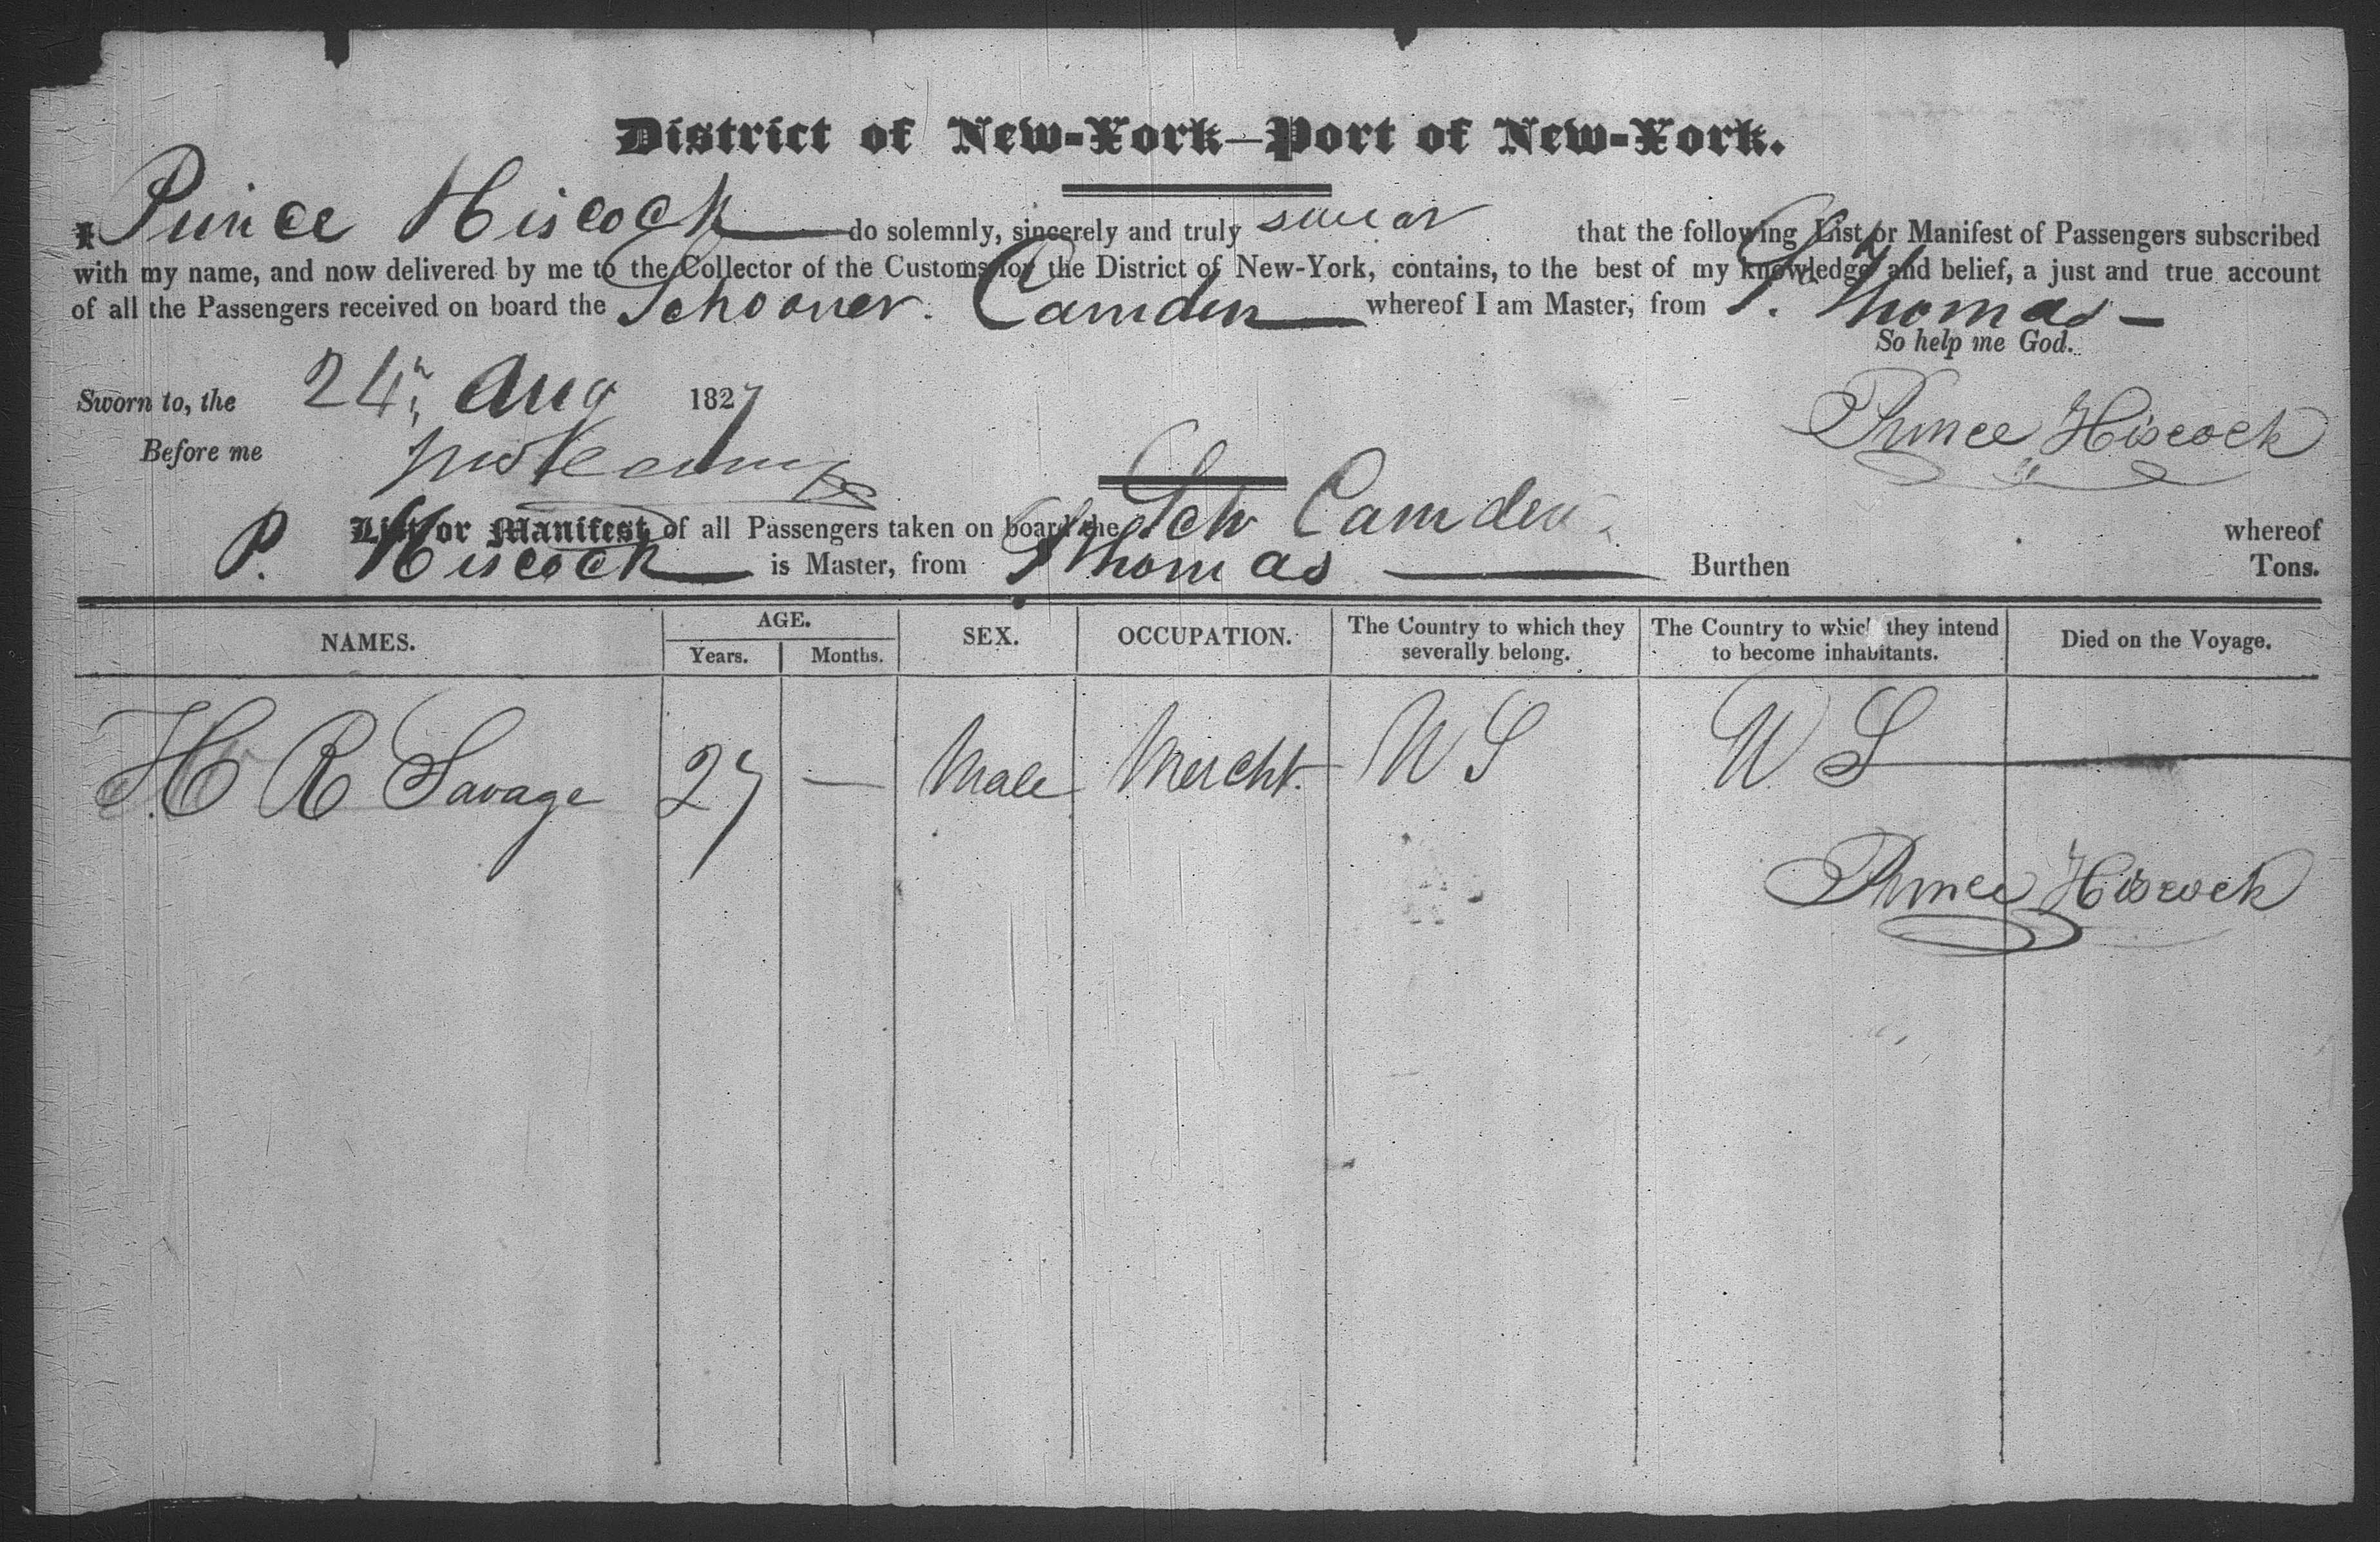 District of New-York—Port of New-York.
I Prince Hiscock do solemnly, sincerely and truly swear that the following List or Manifest of Passengers subscribed
with my name, and now delivered by me to the Collector of the Customs for the District of New-York, contains, to the best of my knowledge and belief, a just and true account
of all the Passengers received on board the Schooner. Camden whereof I am Master, from St. Thomas
So help me God.
Sworn to, the 24th Aug 1827
Prince Hiscock
Before me
List or Manifest of all Passengers taken on board the Sch Camden whereof
P. Hiscock is Master, from St Thomas Burthen Tons.
NAMES. AGE. SEX. OCCUPATION. The Country to which they severally belong. The Country to which they intend to become inhabitants. Died on the Voyage.
Years. Months.
H R Savage 27 — Male Mercht. U S U S
Prince Hiscock